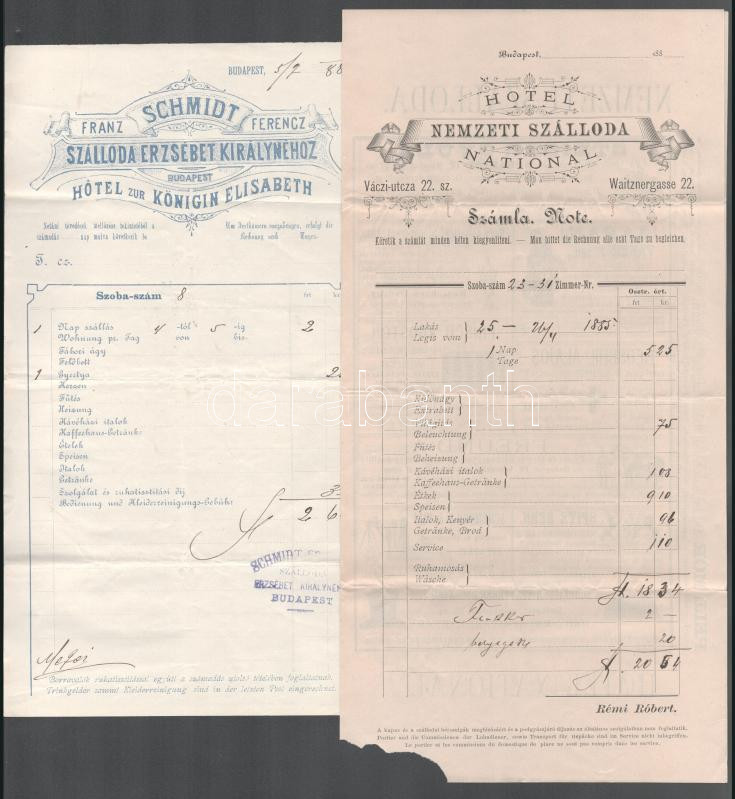 BUDAPEST, 5/9 88
FRANZ SCHMIDT FERENCZ
SZÁLLODA ERZSÉBET KIRÁLYNÉHOZ
BUDAPEST
HÔTEL ZUR KÖNIGIN ELISABETH
T. cz.
Szoba-szám 8
frt kr
1 Nap szállás 4 -től 5 -ig 2
Wohnung pr. Tag von bis.
Tábori ágy
Feldbett
1 Gyertya
Kerzen
Fűtés
Heizung
Kávéházi italok
Kaffeehaus-Getränke
Ételek
Speisen
Italok
Getränke
Szolgálat és ruhatisztítási díj
Bedienung und Kleiderreinigungs-Gebühr
2 6
SCHMIDT
ERZSÉBET KIRÁLYNÉ
BUDAPEST
Borravalók ruhatisztítással együtt a számadás utolsó tételében foglaltatnak.
Trinkgelder sammt Kleiderreinigung sind in der letzten Post eingerechnet.
Budapest, 188
HOTEL
NEMZETI SZÁLLODA
NATIONAL
Váczi-utcza 22. sz. Waitznergasse 22.
Számla. Note.
Kéretik a számlát minden héten kiegyenlíteni. — Man bittet die Rechnung alle acht Tage zu begleichen.
Szoba-szám 23-31 Zimmer-Nr.
Osztr. ért.
frt kr.
Lakás 25 — 26/4 1885.
Logis vom
1 Nap 5 25
Tage
Különágy
Extrabett
Világitás 75
Beleuchtung
Fütés
Beheizung
Kávéházi italok 1 03
Kaffeehaus-Getränke
Étkek 9 10
Speisen
Italok, Kenyér 96
Getränke, Brod
Service 1 10
Ruhamosás
Wäsche
fl. 18 34
2 —
20
fl. 20 54
Rémi Róbert.
A kapus és a szállodai bérszolgák megbizásáért és a podgyászjáró díjazás az általános szolgálatban nem foglaltatik.
Portier und die Commissionen der Lohndiener, sowie Transport für Gepäcke sind im Service nicht inbegriffen.
Le portier et les commissions du domestique de place ne sont pas compris dans les service.
darabanth